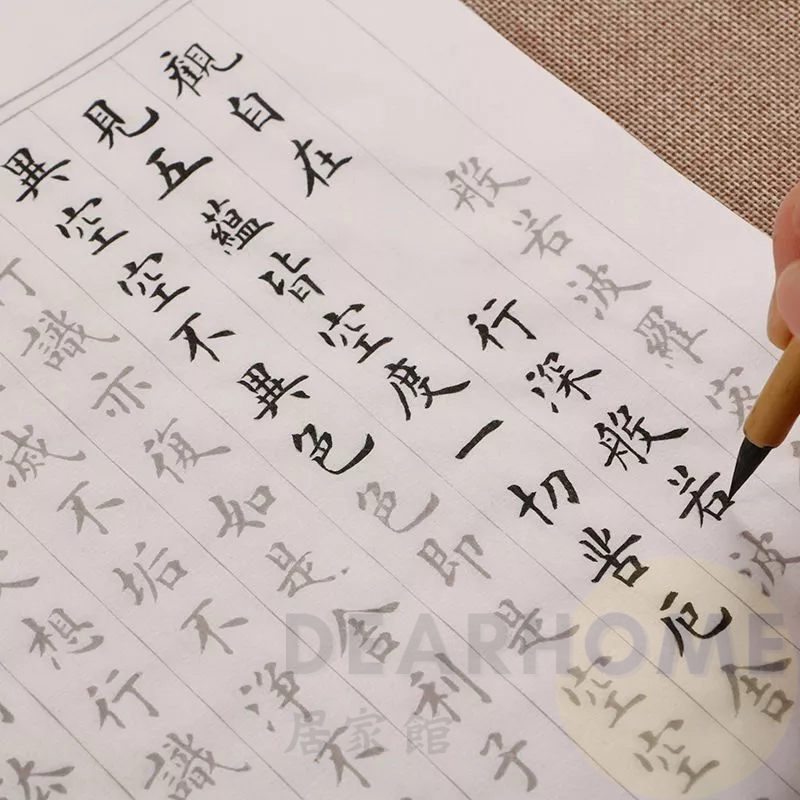 般若波羅
觀自在行深般若波
見五蘊皆空度一切苦厄舍
異空空不異色色即是空空
行識亦復如是舍利子
滅不垢不淨不
想行識
DEARHOME
居家館